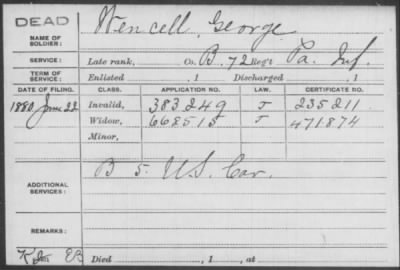 DEAD
NAME OF SOLDIER: Wencell, George
SERVICE: Late rank, Co. B, 72 Reg't Pa. Inf.
TERM OF SERVICE: Enlisted , 1 Discharged , 1
DATE OF FILING. CLASS. APPLICATION NO. LAW. CERTIFICATE NO.
1880 June 22 Invalid, 383249 J 235211
Widow, 668515 J 471874
Minor,
ADDITIONAL SERVICES: B 5 U.S. Cav.
REMARKS:
Died , 1 , at